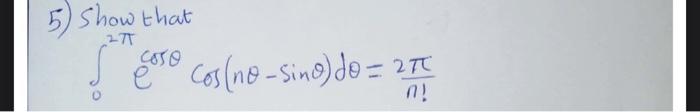 5) Show that
∫₀^{2π} e^{cosθ} cos(nθ - sinθ)dθ = 2π/n!